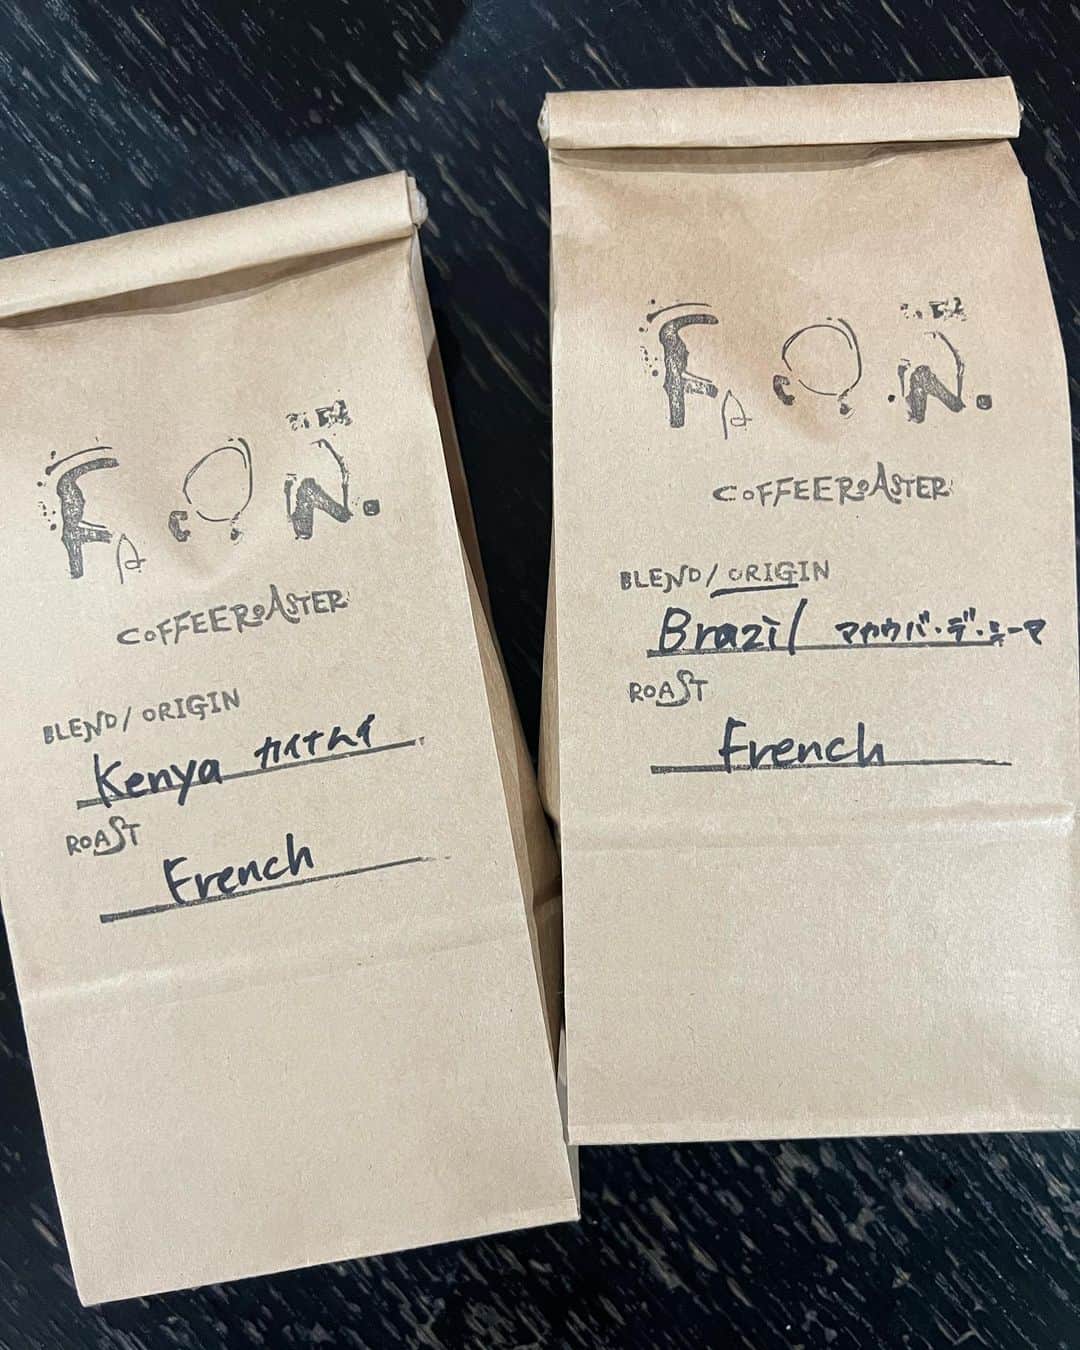 COFFEEROASTER
BLEND/ORIGIN
Kenya カイナムイ
ROAST
French
COFFEEROASTER
BLEND/ORIGIN
Brazil マカウバ・デ・シーマ
ROAST
French